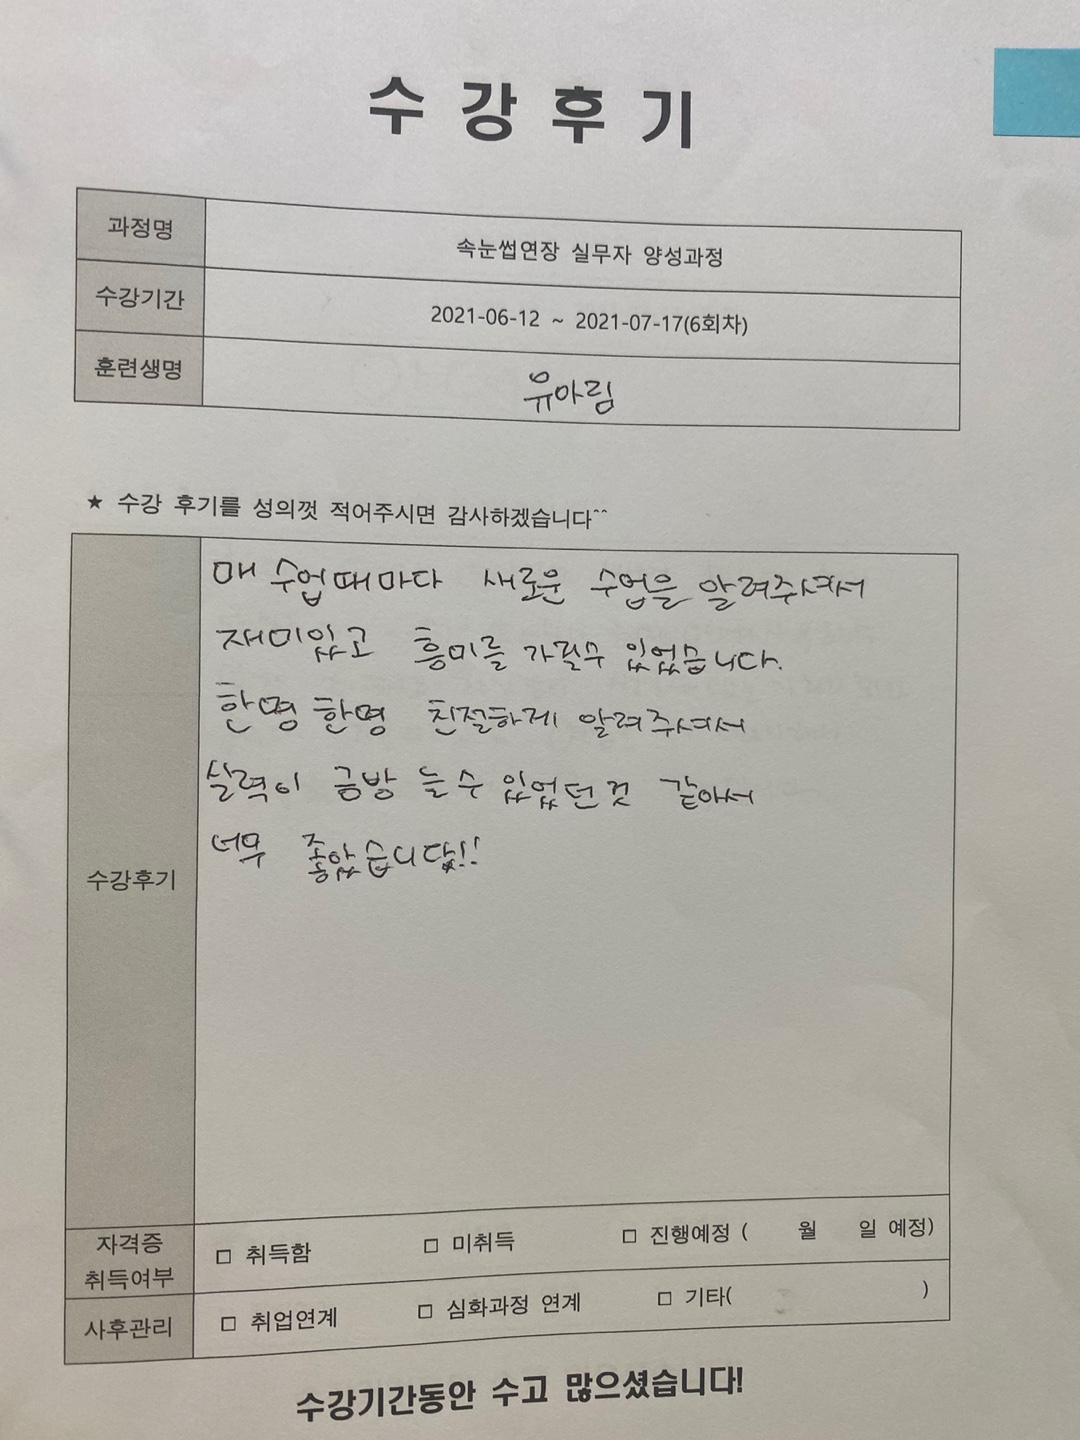 수강후기
과정명 속눈썹연장 실무자 양성과정
수강기간 2021-06-12 ~ 2021-07-17(6회차)
훈련생명 유아림
★ 수강 후기를 성의껏 적어주시면 감사하겠습니다^^
매 수업때마다 새로운 수업을 알려주셔서
재미있고 흥미를 가질수 있었습니다.
한명 한명 친절하게 알려주셔서
실력이 금방 늘수 있었던것 같아서
너무 좋았습니다!!
수강후기
자격증
취득여부
□ 취득함 □ 미취득 □ 진행예정 ( 월 일 예정)
사후관리 □ 취업연계 □ 심화과정 연계 □ 기타( )
수강기간동안 수고 많으셨습니다!